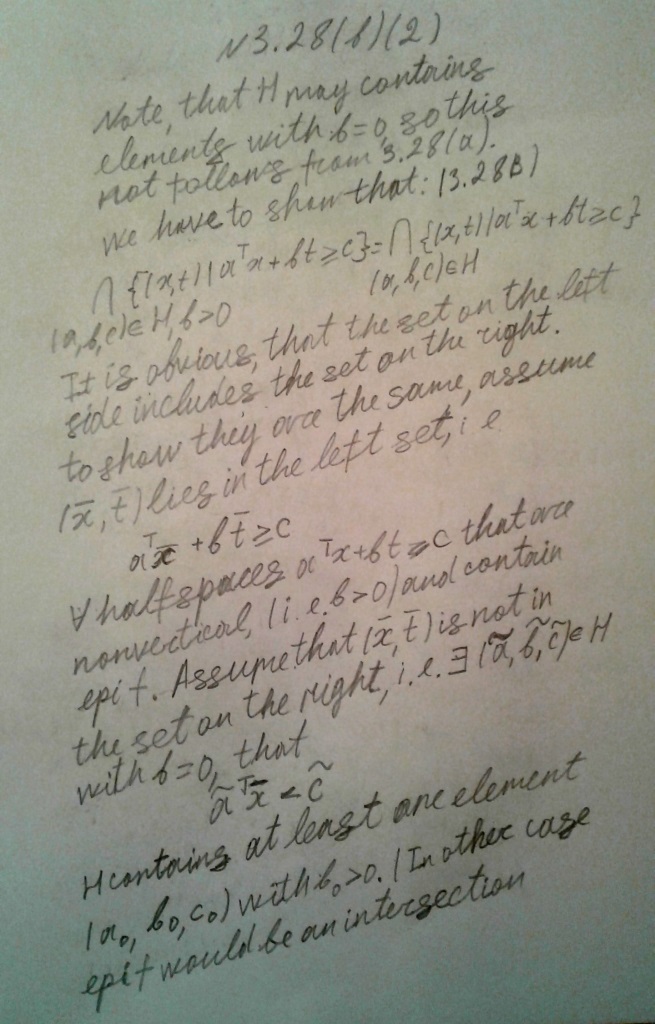 N3.28(b)(2)
Note, that H may contains
elements with b=0, so this
not follows from 3.28(a).
we have to show that: (3.28B)
⋂ {(x,t)|aᵀx+bt≥c}=⋂{(x,t)|aᵀx+bt≥c}
(a,b,c)∈H,b>0 (a,b,c)∈H
It is obvious, that the set on the left
side includes the set on the right.
to show they are the same, assume
(x̄,t̄) lies in the left set, i e
aᵀx̄+bt̄≥c
∀ halfspaces aᵀx+bt≥c that are
nonvertical (i.e. b>0) and contain
epi f. Assume that (x̄,t̄) is not in
the set on the right, i.e. ∃(ã,b̃,c̃)∈H
with b̃=0, that
ãᵀx̄<c̃
H contains at least one element
(a₀,b₀,c₀) with b₀>0. (In other case
epi f would be an intersection